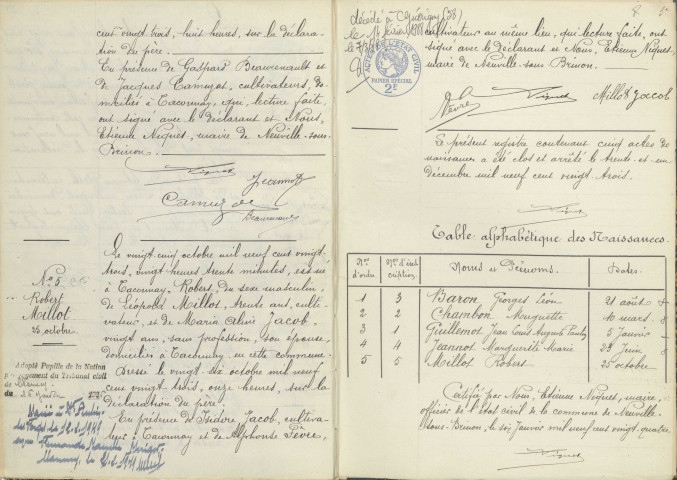 cent vingt trois, huit heures, sur la déclara-
tion du père.
En présence de Gaspard Beauvenault et
de Jacques Camuzat, cultivateurs, do-
miciliés à Taconnay, qui, lecture faite,
ont signé avec le déclarant et Nous,
Etienne Niquet, maire de Neuville-sous-
Brinon.
Jeannot
Camuzat
Beauvenault
N° 5
Robert
Millot
25 octobre
Le vingt cinq octobre mil neuf cent vingt
trois, vingt heures trente minutes, est né
à Taconnay, Robert, du sexe masculin,
de Léopold Millot, trente ans, culti-
vateur, et de Maria Jacob,
vingt ans, sans profession, son épouse,
domiciliés à Taconnay, en cette commune.
Dressé le vingt six octobre mil neuf
cent vingt trois, onze heures, sur la
déclaration du père.
En présence d'Isidore Jacob, cultiva-
teur à Taconnay et de Alphonse Fèvre,
Adopté Pupille de la Nation
jugement du Tribunal civil
du
décédé à Guérigny (58)
le
cultivateur au même lieu, qui lecture faite, ont
signé avec le déclarant et Nous, Etienne Niquet,
maire de Neuville-sous-Brinon.
ACTES DE L'ETAT CIVIL
PAPIER SPECIAL
2F
Fèvre
Millot Jacob
Le présent registre contenant cinq actes de
naissances a été clos et arrêté le trente et un
décembre mil neuf cent vingt trois.
Table alphabétique des Naissances.
Nos d'ordre Nos d'ins-cription. Noms et Prénoms. Dates.
1 3 Baron Georges Léon 21 août
2 2 Chambon Huguette 10 mars
3 1 Guillemot Jean Louis Auguste 5 janvier
4 4 Jeannot Marguerite Marie 23 juin
5 5 Millot Robert 25 octobre
Certifié par Nous, Etienne Niquet, maire,
officier de l'état civil de la commune de Neuville-
sous-Brinon, le six janvier mil neuf cent vingt quatre.